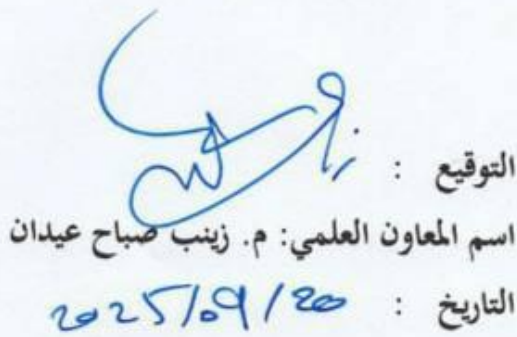 التوقيع :
اسم المعاون العلمي: م. زينب صباح عيدان
التاريخ : 2025/09/20